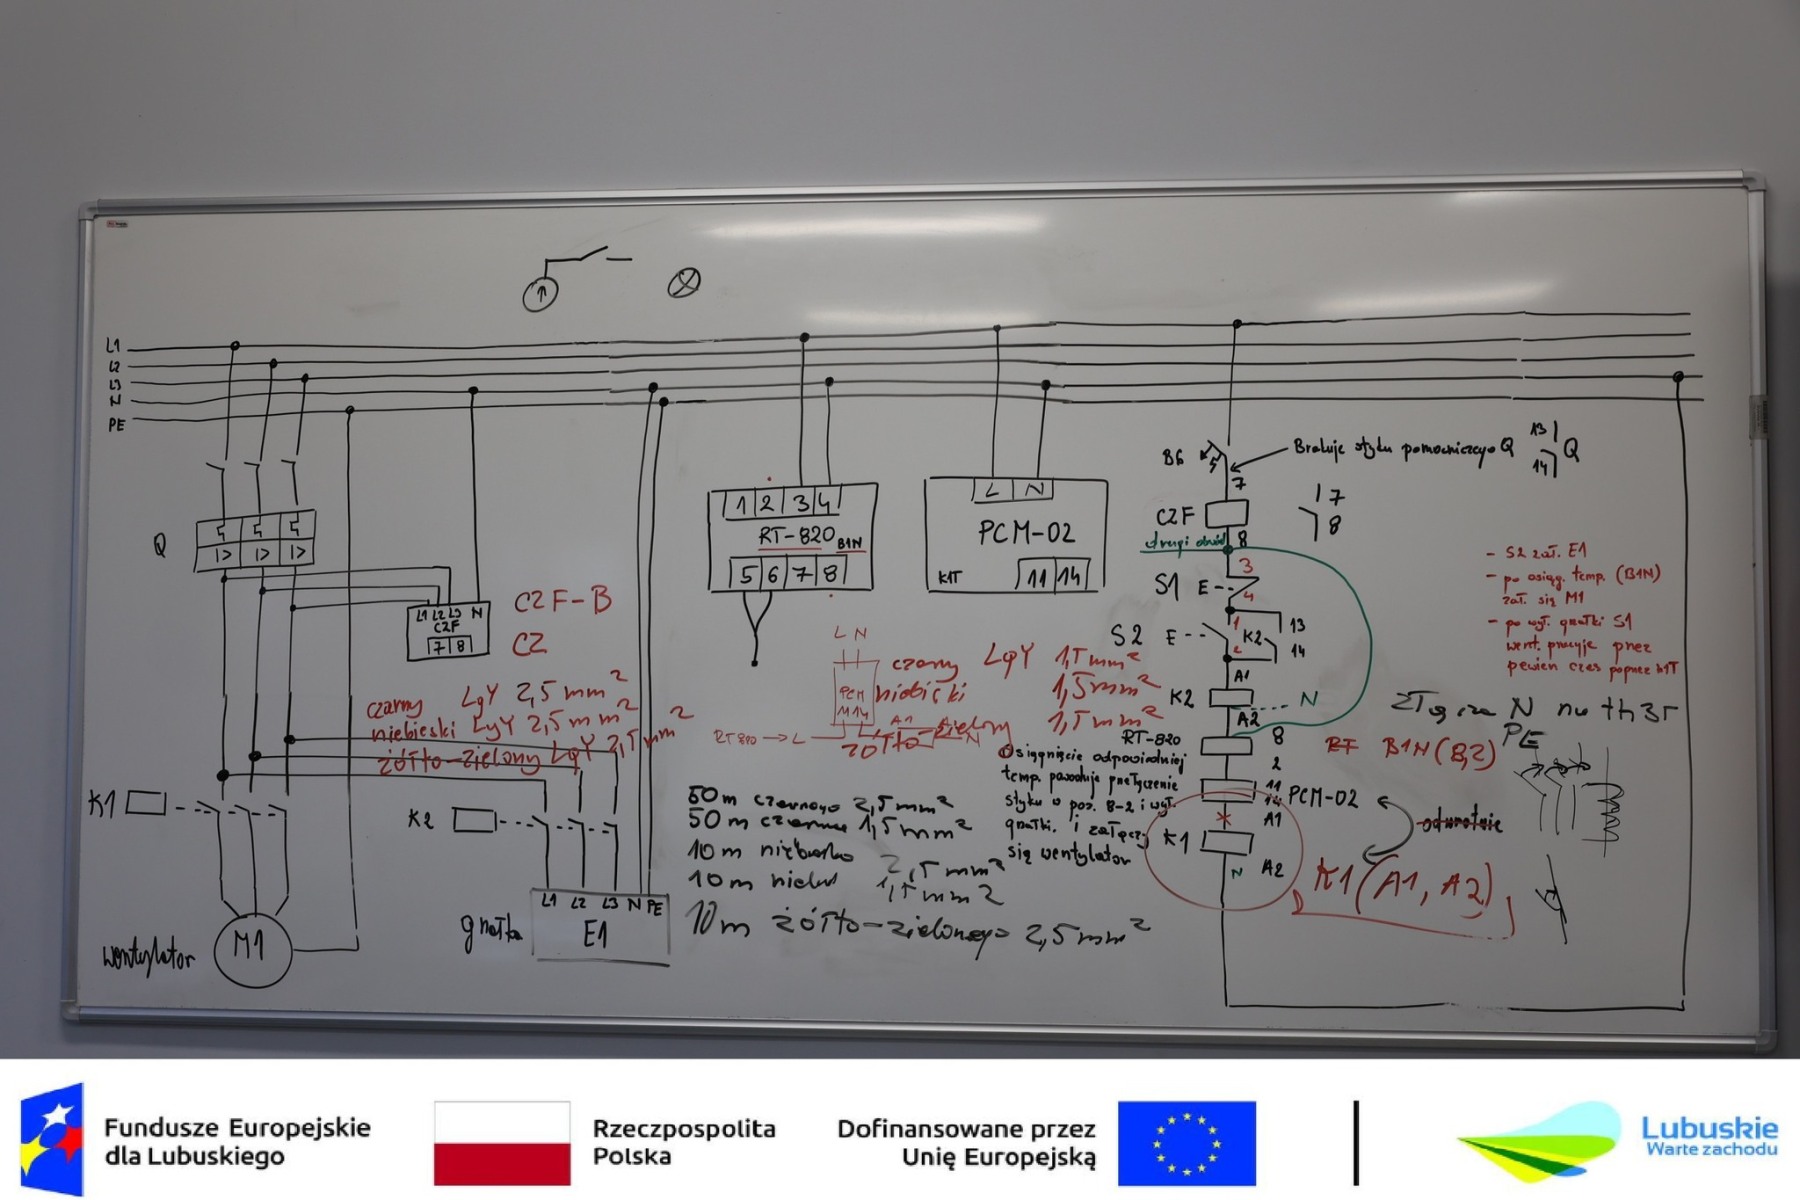 L1
L2
L3
N
PE
Q
I> I> I>
L1 L2 L3 N
CZF
7 8
CZF-B
CZ
czarny LgY 2,5 mm²
niebieski LgY 2,5 mm²
żółto-zielony LgY 2,5 mm²
K1
K2
wentylator
M1
L1 L2 L3 N PE
E1
1 2 3 4
RT-820 B1N
5 6 7 8
L N
PCM-02
K1T
11 14
L N
PCM
czarny LgY 1,5 mm²
niebieski 1,5 mm²
1,5 mm²
RT 820 → L
A1
żółto-zielony
N
50 m czarnego 2,5 mm²
50 m czarnego 1,5 mm²
10 m niebiesko 2,5 mm²
10 m niebies 1,5 mm²
10 m żółto-zielonego 2,5 mm²
Osiągnięcie odpowiedniej
temp. powoduje przełączenie
styku w poz. 8-2 i wył.
grzałki. i załączy
się wentylator
B6
Brakuje styku pomocniczego Q
13
14
Q
7
CZF
8
7
8
drugi obwód
3
S1 E
4
1
S2 E
2
K2
13
14
A1
K2
N
A2
RT-820
8
2
RT B1N (8,2)
11
14
PCM-02
odwrotnie
A1
K1
N A2
K1 (A1, A2)
- S2 zał. E1
- po osiąg. temp. (B1N)
zał. się M1
- po wył. grzałki S1
went. pracuje przez
pewien czas poprzez K1T
Złącza N na th35
PE
Fundusze Europejskie
dla Lubuskiego
Rzeczpospolita
Polska
Dofinansowane przez
Unię Europejską
Lubuskie
Warte zachodu